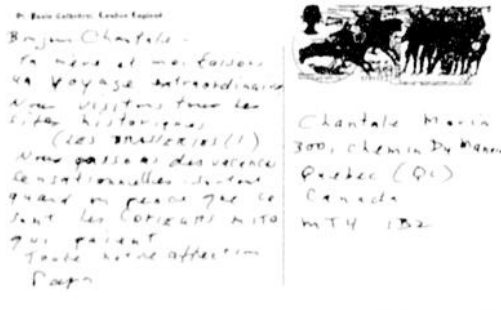 St. Pauls Cathedral, London England
Bonjour Chantale -
Ta mère et moi faisons
un voyage extraordinaire
Nous visitons tous les
sites historiques
(LES BRASSERIES (!)
Nous passons des vacances
sensationnelles surtout
quand on pense que ce
sont les
qui paient
Toute notre affection
Papa
Chantale Morin
300, Chemin Du Manoir
Quebec (Qc)
Canada
MTH 1B2